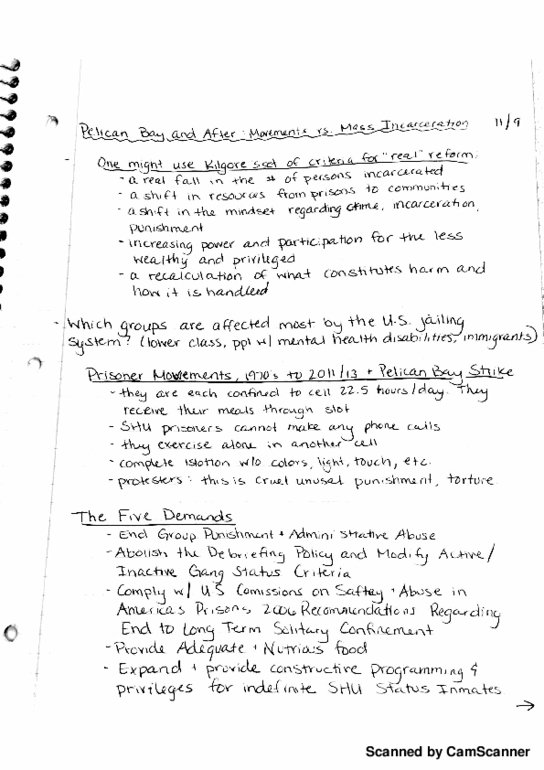 Pelican Bay and After: Movements vs. Mass Incarceration 11/9
- One might use Kilgore's set of criteria for "real" reform:
- a real fall in the # of persons incarcerated
- a shift in resources from prisons to communities
- a shift in the mindset regarding crime, incarceration,
punishment
- increasing power and participation for the less
wealthy and privileged
- a recalculation of what constitutes harm and
how it is handled
- Which groups are affected most by the U.S. jailing
system? (lower class, ppl w/ mental health disabilities, immigrants)
Prisoner Movements, 1970's to 2011/13 + Pelican Bay Strike
- they are each confined to cell 22.5 hours/day. They
receive their meals through slot
- SHU prisoners cannot make any phone calls
- they exercise alone in another cell
- complete islotion w/o colors, light, touch, etc.
- protesters: this is cruel unusual punishment, torture
The Five Demands
- End Group Punishment + Administrative Abuse
- Abolish the Debriefing Policy and Modify Active/
Inactive Gang Status Criteria
- Comply w/ US Comissions on Saftey + Abuse in
America's Prisons 2006 Recommendations Regarding
End to Long Term Solitary Confinement
- Provide Adequate + Nutrious food
- Expand + provide constructive programming &
privileges for indefinite SHU Status Inmates
→
Scanned by CamScanner